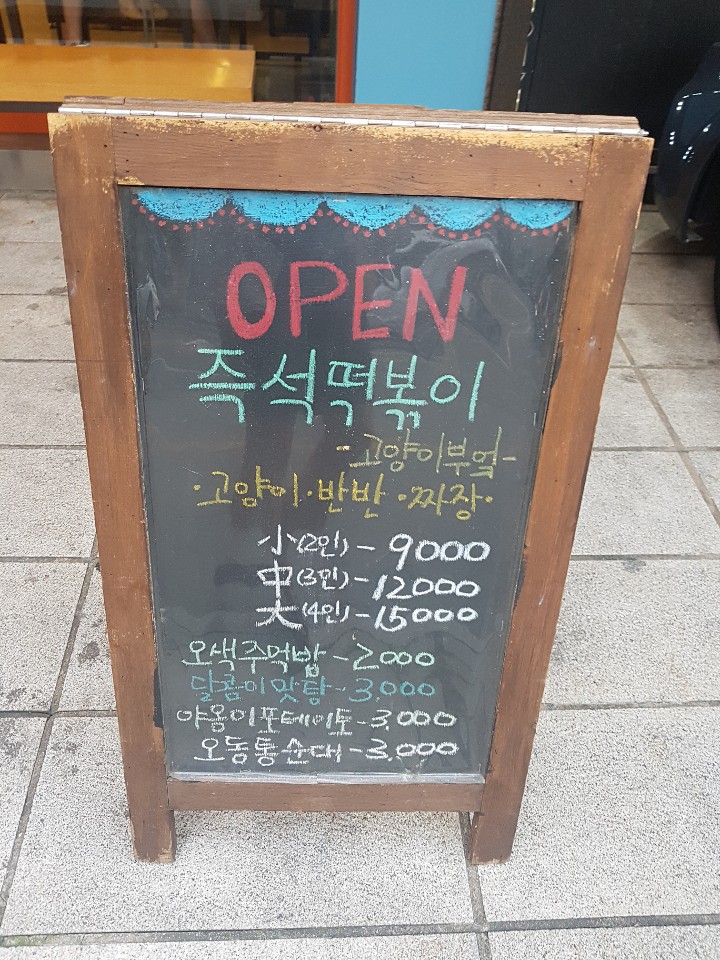 OPEN
즉석떡볶이
-고양이부엌-
·고양이·반반·짜장·
小(2인)-9000
中(3인)-12000
大(4인)-15000
오색주먹밥-2000
달콤이맛탕-3,000
야옹이포테이토-3,000
오동통순대-3,000